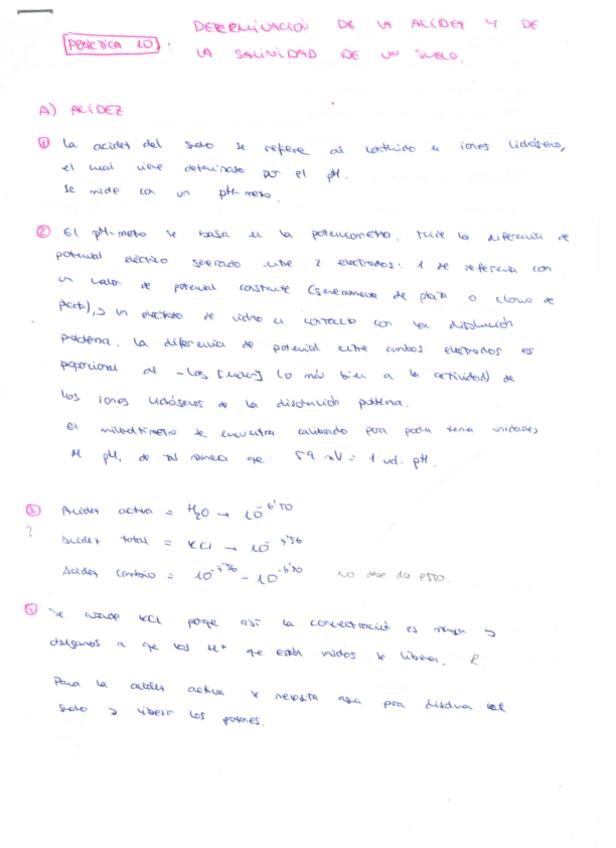 DETERMINACIÓN DE LA ACIDEZ Y DE
PRÁCTICA 10: LA SALINIDAD DE UN SUELO.
A) ACIDEZ
① La acidez del suelo se refiere al contenido en iones hidrógeno,
el cual viene determinado por el pH.
Se mide con un pH-metro.
② El pH-metro se basa en la potenciometría. Mide la diferencia de
potencial eléctrico generado entre 2 electrodos: 1 de referencia con
un valor de potencial constante (generalmente de plata o cloruro de
plata), y un electrodo de vidrio en contacto con la disolución
problema. La diferencia de potencial entre ambos electrodos es
proporcional al -log (o más bien a la actividad) de
los iones hidrógenos de la disolución problema.
El milivoltímetro se encuentra calibrado para poder tener unidades
de pH, de tal manera que: 59 mV = 1 ud. pH.
③ Acidez activa = H2O → 10^-6'50
? Acidez total = KCl → 10
Acidez cambio = 10 - 10 no sale da esto.
Se añade KCl porque así la concentración es mayor y
obligamos a que los H+ que están unidos se liberen. R.
Para la acidez activa se necesita agua para disolver el
suelo y liberar los protones.